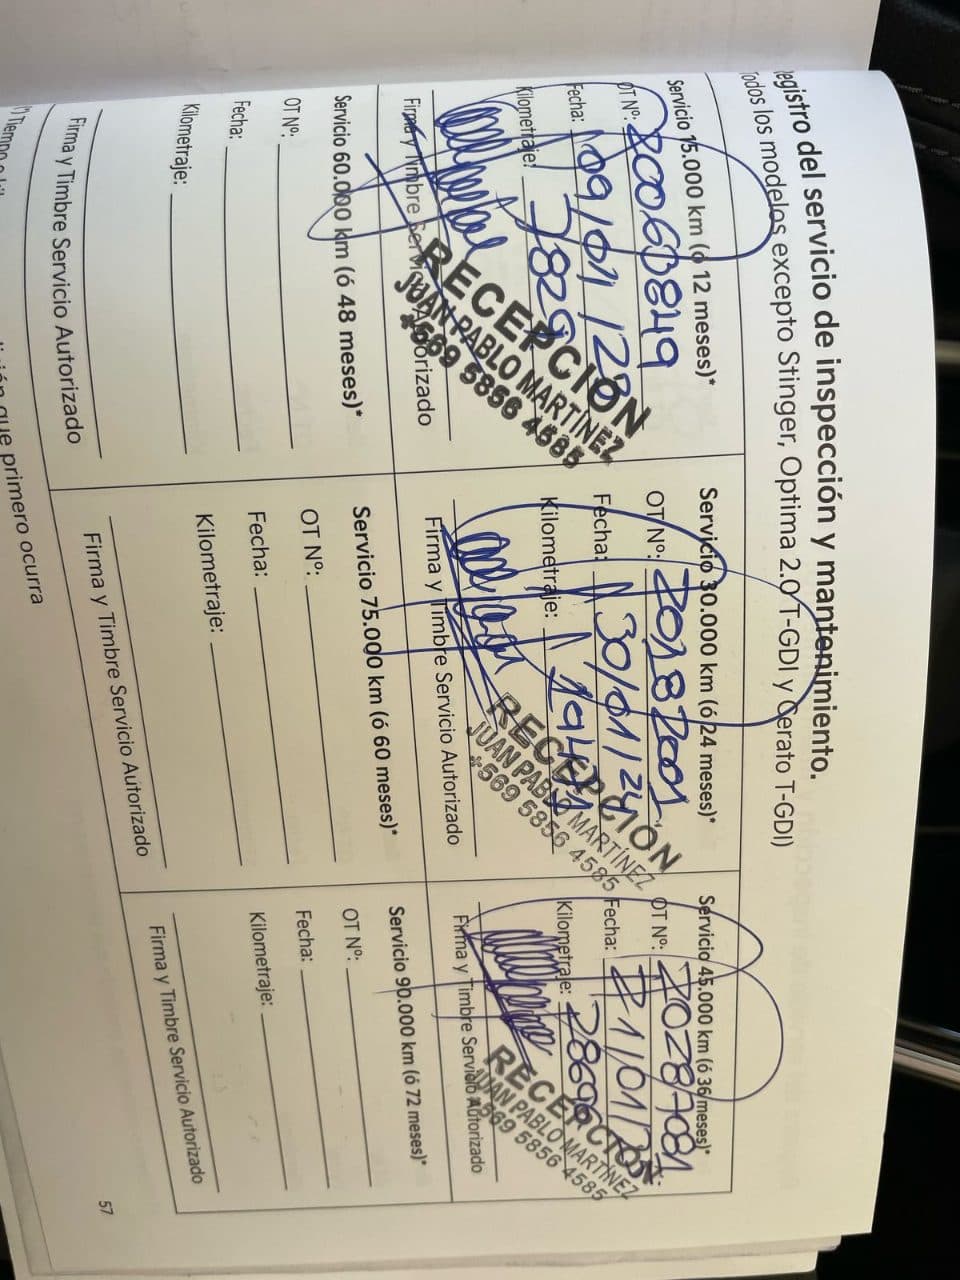 Registro del servicio de inspección y mantenimiento.
Todos los modelos excepto Stinger, Optima 2.0 T-GDI y Cerato T-GDI)
Servicio 15.000 km (ó 12 meses)*
OT Nº: 200608849
Fecha: 09/01/23
Kilometraje: 7829
Firma y Timbre Servicio Autorizado
RECEPCIÓN
JUAN PABLO MARTÍNEZ
+569 5856 4585
Servicio 30.000 km (ó 24 meses)*
OT Nº: 20182001
Fecha: 30/01/24
Kilometraje:
Firma y Timbre Servicio Autorizado
RECEPCIÓN
JUAN PABLO MARTÍNEZ
+569 5856 4585
Servicio 45.000 km (ó 36 meses)*
OT Nº: 20287081
Fecha: 21/01/25
Kilometraje: 28696
Firma y Timbre Servicio Autorizado
RECEPCIÓN
JUAN PABLO MARTÍNEZ
+569 5856 4585
Servicio 60.000 km (ó 48 meses)*
OT Nº:
Fecha:
Kilometraje:
Firma y Timbre Servicio Autorizado
Servicio 75.000 km (ó 60 meses)*
OT Nº:
Fecha:
Kilometraje:
Firma y Timbre Servicio Autorizado
Servicio 90.000 km (ó 72 meses)*
OT Nº:
Fecha:
Kilometraje:
Firma y Timbre Servicio Autorizado
(*) Tiempo que primero ocurra
57